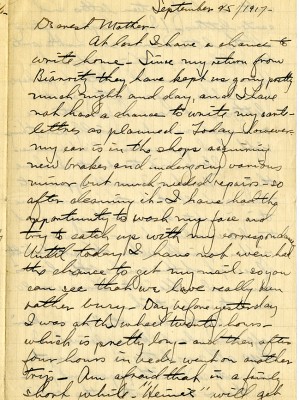 September 25/1917-
Dearest Mother-
At last I have a chance to
write home - Since my return from
Biarritz they have kept us going pretty
much night and day, and I have
not had a chance to write my
letters as planned - Today however
my car is in the shops acquiring
new brakes and undergoing various
minor but much needed repairs - so
after cleaning it - I have had the
opportunity to wash my face and
try to catch up with my correspondence
Until today I have not even had
the chance to get my mail. so you
can see that we have really been
rather busy - Day before yesterday
I was at the wheel twenty hours-
which is pretty long - and then after
four hours in bed went on another
trip - Am afraid that in a fairly
short while - "Heinie" will get